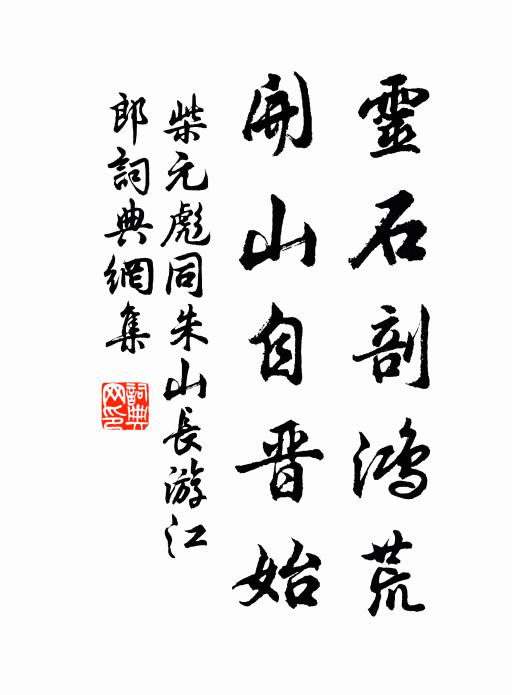 靈石剖鴻荒
開山自晋始
柴元彪同朱山長游江
郎詞典網集
詞典
网印